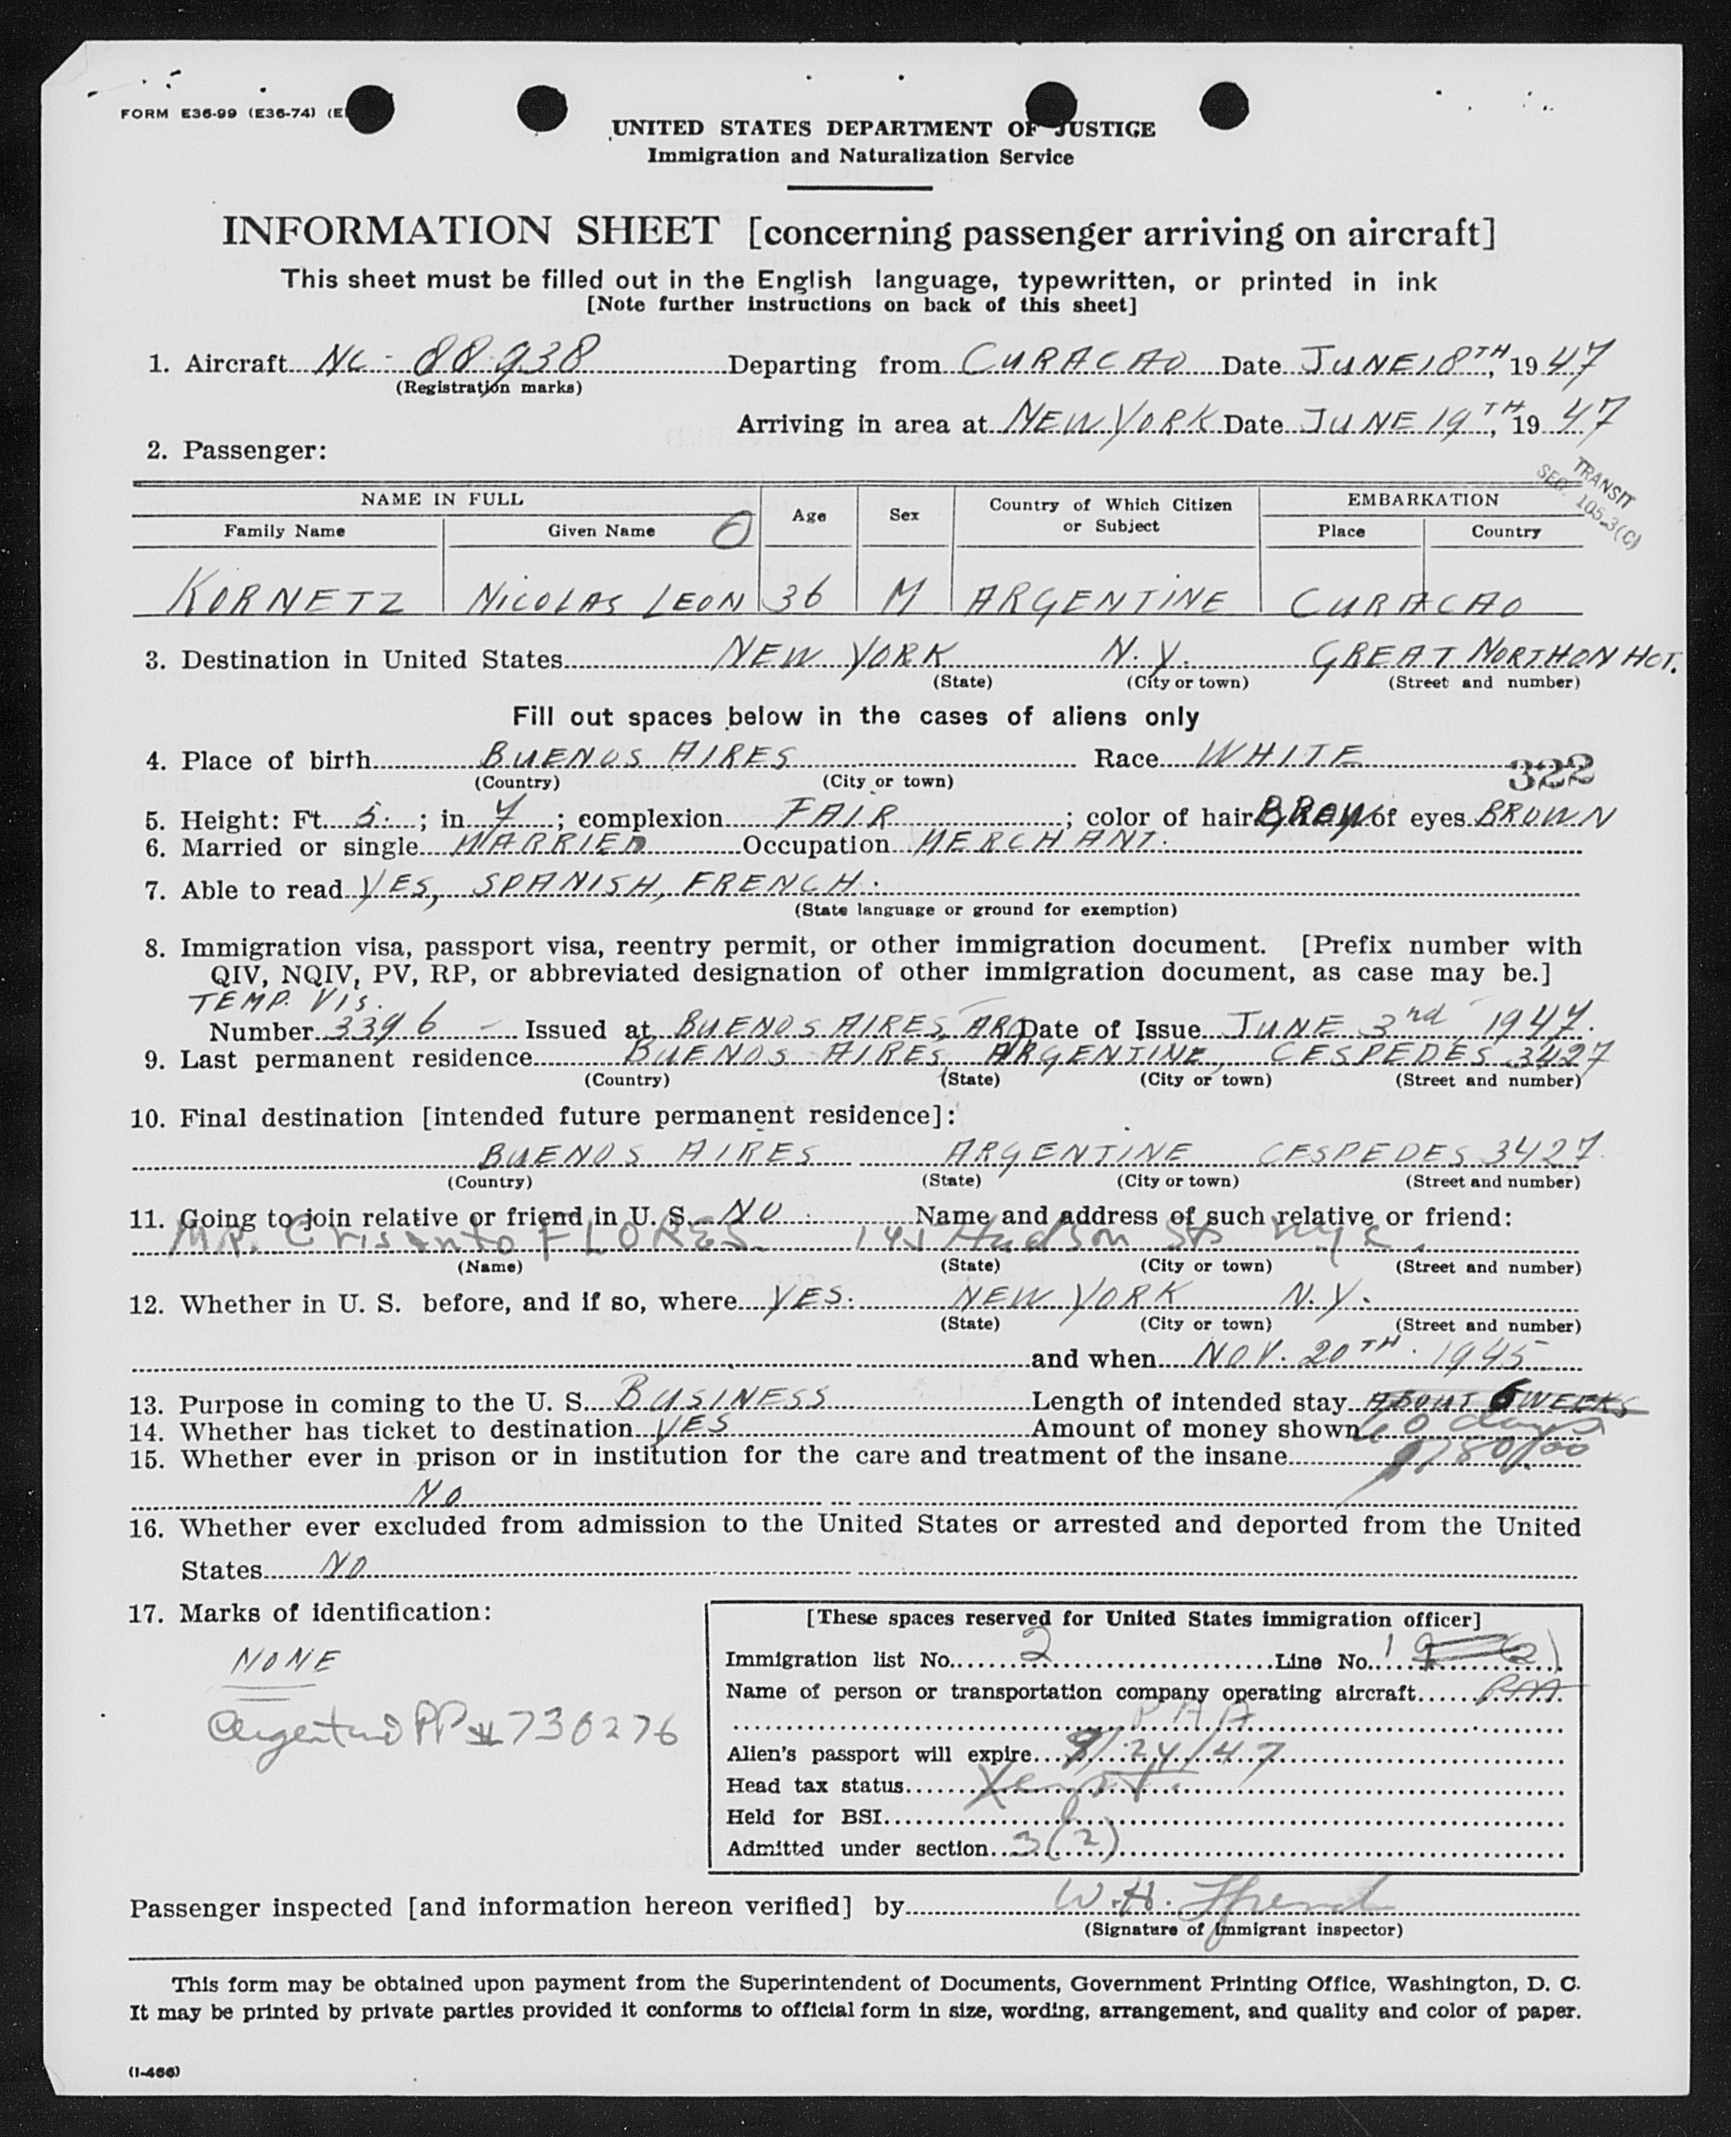 FORM E36-99 (E36-74) (E
UNITED STATES DEPARTMENT OF JUSTICE
Immigration and Naturalization Service
INFORMATION SHEET [concerning passenger arriving on aircraft]
This sheet must be filled out in the English language, typewritten, or printed in ink
[Note further instructions on back of this sheet]
1. Aircraft NC - 88938 Departing from CURACAO Date JUNE 18TH, 1947
(Registration marks)
Arriving in area at NEW YORK Date JUNE 19TH, 1947
2. Passenger:
TRANSIT
SEC. 105.3(C)
NAME IN FULL Age Sex Country of Which Citizen or Subject EMBARKATION
Family Name Given Name Place Country
KORNETZ NICOLAS LEON 36 M ARGENTINE CURACAO
3. Destination in United States NEW YORK N.Y. GREAT NORTHON HOT.
(State) (City or town) (Street and number)
Fill out spaces below in the cases of aliens only
4. Place of birth BUENOS AIRES Race WHITE
(Country) (City or town)
322
5. Height: Ft. 5 ; in 7 ; complexion FAIR ; color of hair BROW of eyes BROWN
6. Married or single MARRIED Occupation MERCHANT.
7. Able to read YES, SPANISH, FRENCH.
(State language or ground for exemption)
8. Immigration visa, passport visa, reentry permit, or other immigration document. [Prefix number with
QIV, NQIV, PV, RP, or abbreviated designation of other immigration document, as case may be.]
TEMP. VIS.
Number 3396 - Issued at BUENOS AIRES, ARG Date of Issue JUNE 3rd 1947.
9. Last permanent residence BUENOS AIRES ARGENTINE, CESPEDES 3427
(Country) (State) (City or town) (Street and number)
10. Final destination [intended future permanent residence]:
BUENOS AIRES ARGENTINE CESPEDES 3427.
(Country) (State) (City or town) (Street and number)
11. Going to join relative or friend in U. S. NO Name and address of such relative or friend:
MR. Crisanto FLORES 145 Hudson Sts nyc.
(Name) (State) (City or town) (Street and number)
12. Whether in U. S. before, and if so, where YES. NEW YORK N.Y.
(State) (City or town) (Street and number)
and when NOV. 20TH. 1945
13. Purpose in coming to the U. S. BUSINESS Length of intended stay ABOUT 6 WEEKS
14. Whether has ticket to destination YES Amount of money shown 60 days
15. Whether ever in prison or in institution for the care and treatment of the insane $1780/00
NO
16. Whether ever excluded from admission to the United States or arrested and deported from the United
States NO
17. Marks of identification:
NONE
Argentine PP # 730276
[These spaces reserved for United States immigration officer]
Immigration list No. 2 Line No. 1 (2)
Name of person or transportation company operating aircraft PAA
PAA
Alien's passport will expire 9/24/47
Head tax status
Held for BSI
Admitted under section 3(2)
Passenger inspected [and information hereon verified] by W.H.
(Signature of immigrant inspector)
This form may be obtained upon payment from the Superintendent of Documents, Government Printing Office, Washington, D. C.
It may be printed by private parties provided it conforms to official form in size, wording, arrangement, and quality and color of paper.
(I-466)